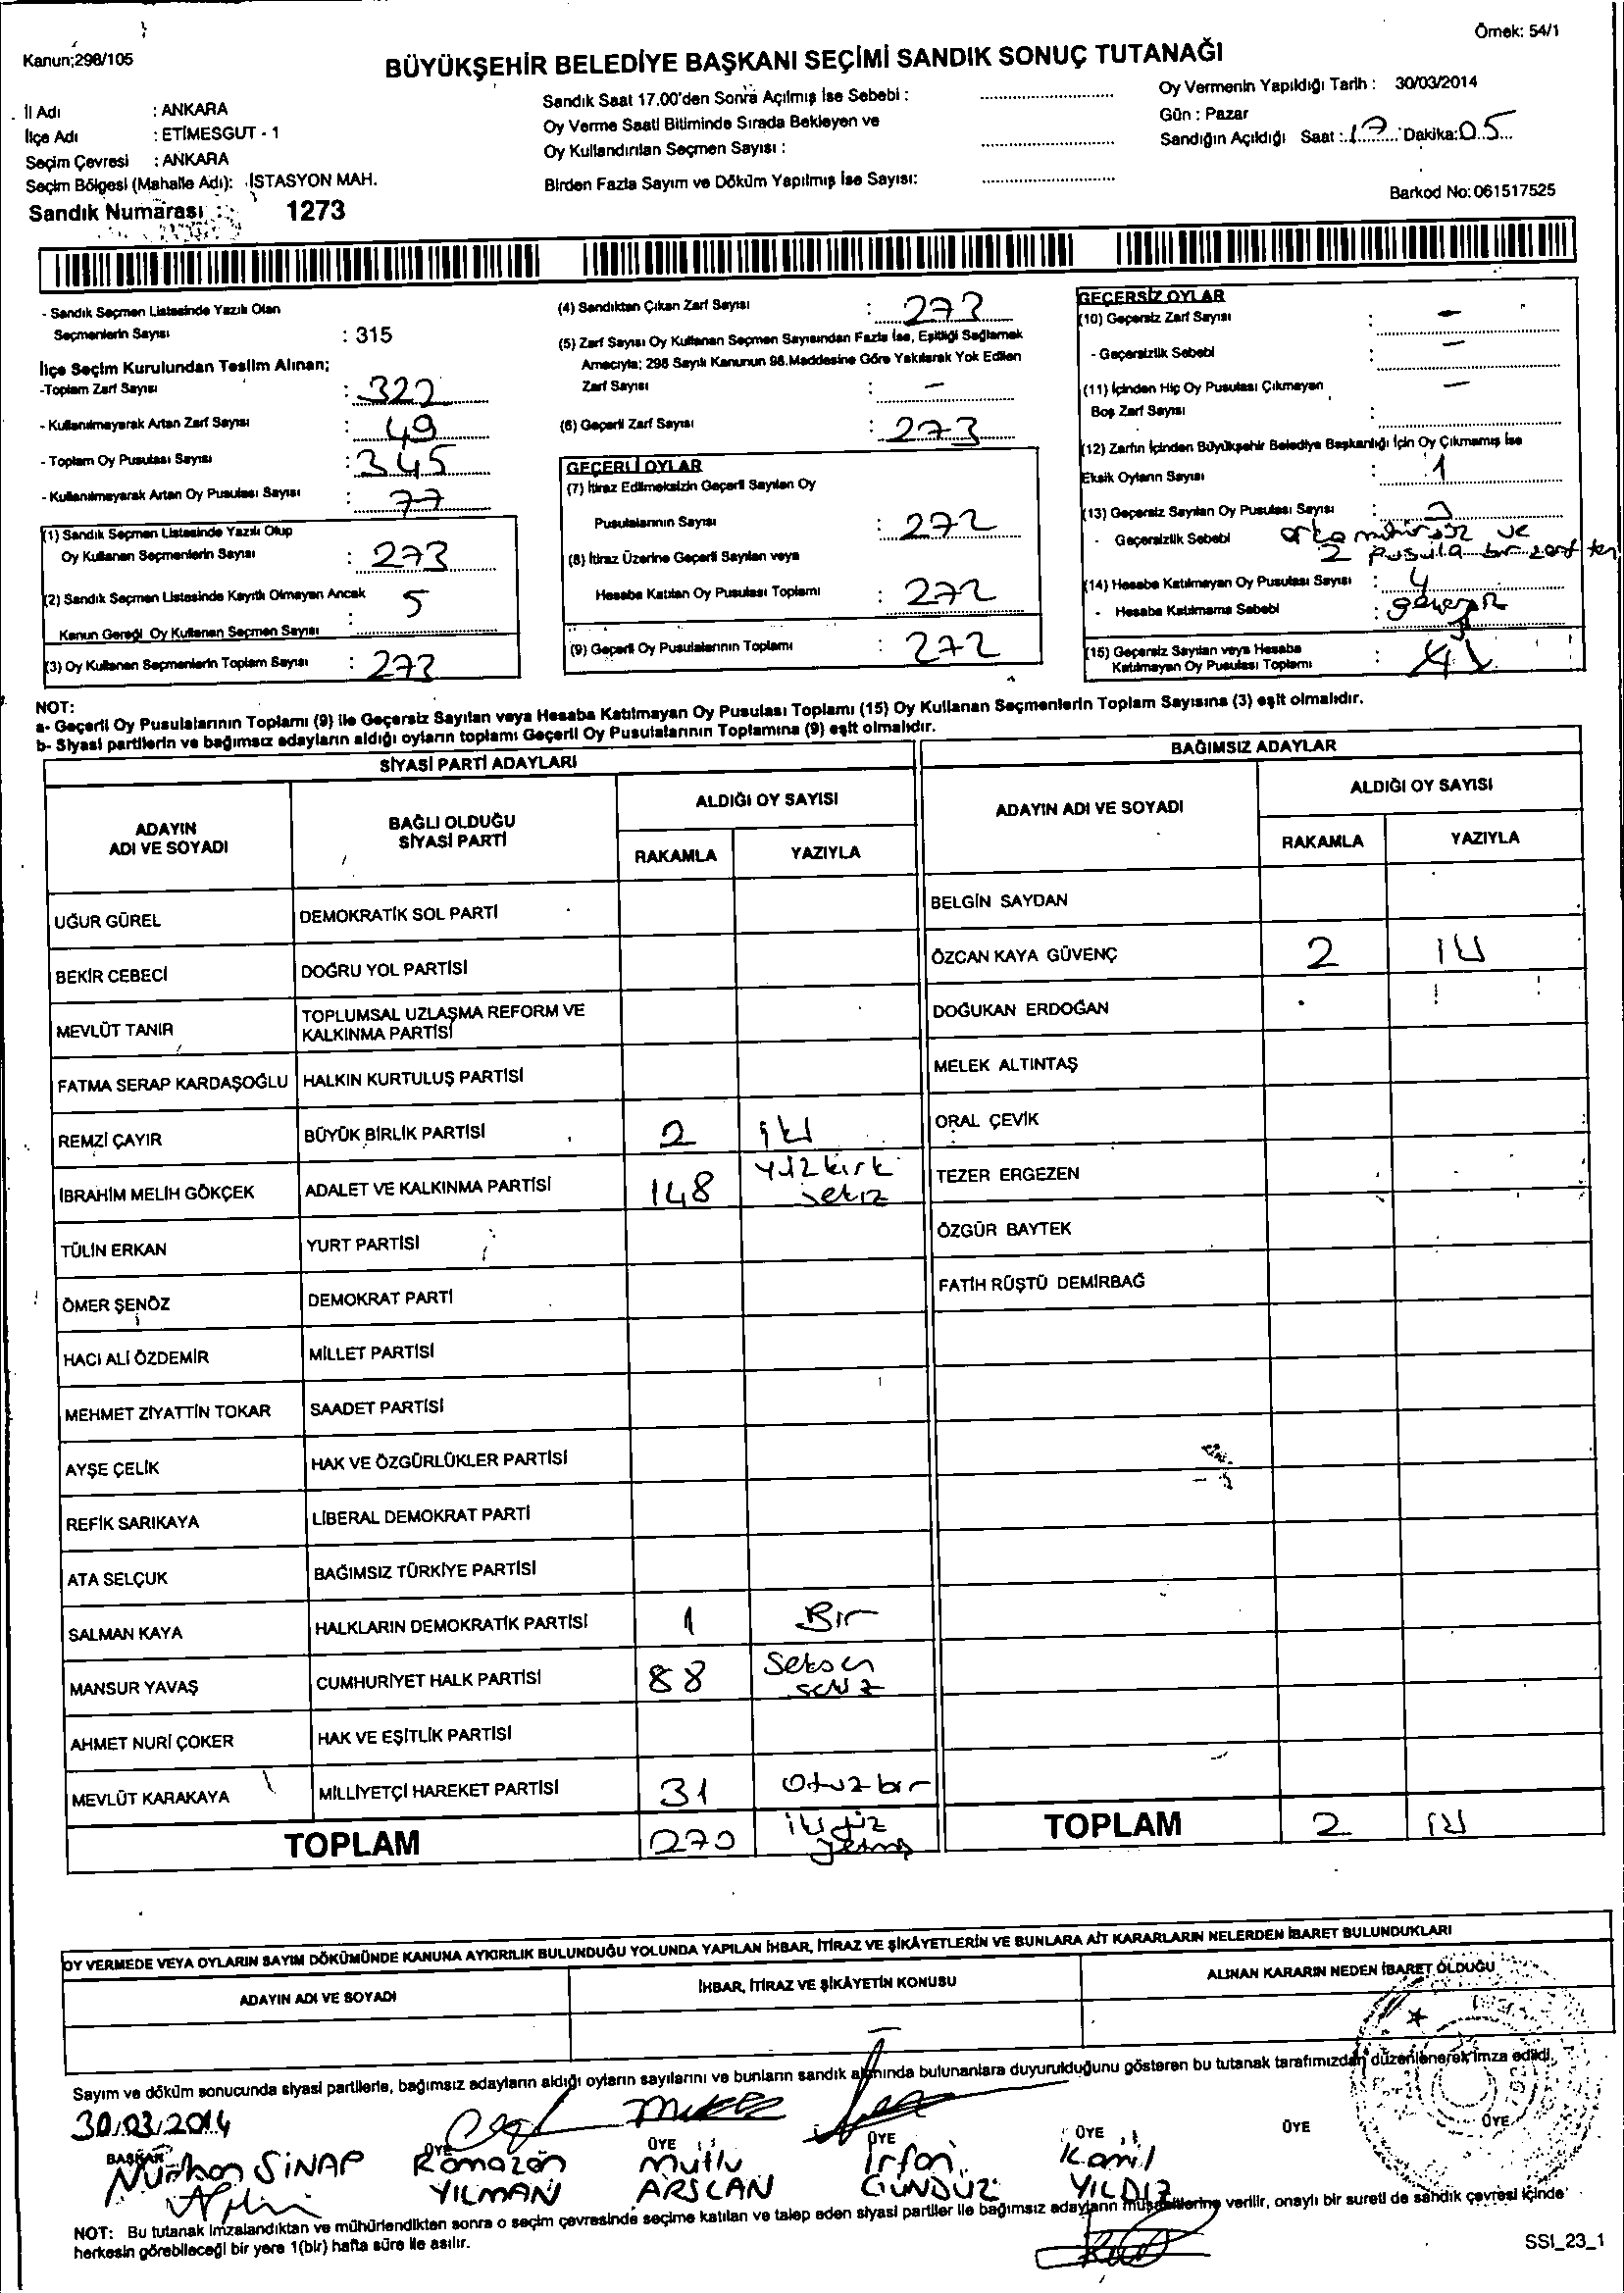 Örnek: 54/1
Kanun;298/105
BÜYÜKŞEHİR BELEDİYE BAŞKANI SEÇİMİ SANDIK SONUÇ TUTANAĞI
İl Adı : ANKARA
İlçe Adı : ETİMESGUT - 1
Seçim Çevresi : ANKARA
Seçim Bölgesi (Mahalle Adı): İSTASYON MAH.
Sandık Numarası : 1273
Sandık Saat 17.00'den Sonra Açılmış İse Sebebi :
Oy Verme Saati Bitiminde Sırada Bekleyen ve
Oy Kullandırılan Seçmen Sayısı :
Birden Fazla Sayım ve Döküm Yapılmış İse Sayısı:
Oy Vermenin Yapıldığı Tarih : 30/03/2014
Gün : Pazar
Sandığın Açıldığı Saat : 17 Dakika: 05
Barkod No: 061517525
- Sandık Seçmen Listesinde Yazılı Olan
Seçmenlerin Sayısı : 315
İlçe Seçim Kurulundan Teslim Alınan;
-Toplam Zarf Sayısı : 322
- Kullanılmayarak Artan Zarf Sayısı : 49
- Toplam Oy Pusulası Sayısı : 345
- Kullanılmayarak Artan Oy Pusulası Sayısı : 77
(1) Sandık Seçmen Listesinde Yazılı Olup
Oy Kullanan Seçmenlerin Sayısı : 273
(2) Sandık Seçmen Listesinde Kayıtlı Olmayan Ancak
Kanun Gereği Oy Kullanan Seçmen Sayısı : 5
(3) Oy Kullanan Seçmenlerin Toplam Sayısı : 273
(4) Sandıktan Çıkan Zarf Sayısı : 273
(5) Zarf Sayısı Oy Kullanan Seçmen Sayısından Fazla İse, Eşitliği Sağlamak
Amacıyla; 298 Sayılı Kanunun 98.Maddesine Göre Yakılarak Yok Edilen
Zarf Sayısı : -
(6) Geçerli Zarf Sayısı : 273
GEÇERLİ OYLAR
(7) İtiraz Edilmeksizin Geçerli Sayılan Oy
Pusulalarının Sayısı : 272
(8) İtiraz Üzerine Geçerli Sayılan veya
Hesaba Katılan Oy Pusulası Toplamı : 272
(9) Geçerli Oy Pusulalarının Toplamı : 272
GEÇERSİZ OYLAR
(10) Geçersiz Zarf Sayısı : -
- Geçersizlik Sebebi : -
(11) İçinden Hiç Oy Pusulası Çıkmayan
Boş Zarf Sayısı : -
(12) Zarfın İçinden Büyükşehir Belediye Başkanlığı İçin Oy Çıkmamış İse
Eksik Oyların Sayısı : 1
(13) Geçersiz Sayılan Oy Pusulası Sayısı : 3
- Geçersizlik Sebebi : arka mühürsüz ve
2 pusula bir zarftan
(14) Hesaba Katılmayan Oy Pusulası Sayısı : 4
- Hesaba Katılmama Sebebi : geçersiz
(15) Geçersiz Sayılan veya Hesaba
Katılmayan Oy Pusulası Toplamı :
NOT:
a- Geçerli Oy Pusulalarının Toplamı (9) ile Geçersiz Sayılan veya Hesaba Katılmayan Oy Pusulası Toplamı (15) Oy Kullanan Seçmenlerin Toplam Sayısına (3) eşit olmalıdır.
b- Siyasi partilerin ve bağımsız adayların aldığı oyların toplamı Geçerli Oy Pusulalarının Toplamına (9) eşit olmalıdır.
SİYASİ PARTİ ADAYLARI
ADAYIN
ADI VE SOYADI
BAĞLI OLDUĞU
SİYASİ PARTİ
ALDIĞI OY SAYISI
RAKAMLA YAZIYLA
UĞUR GÜREL DEMOKRATİK SOL PARTİ
BEKİR CEBECİ DOĞRU YOL PARTİSİ
MEVLÜT TANIR TOPLUMSAL UZLAŞMA REFORM VE
KALKINMA PARTİSİ
FATMA SERAP KARDAŞOĞLU HALKIN KURTULUŞ PARTİSİ
REMZİ ÇAYIR BÜYÜK BİRLİK PARTİSİ 2 iki
İBRAHİM MELİH GÖKÇEK ADALET VE KALKINMA PARTİSİ 148 yüzkırk
sekiz
TÜLİN ERKAN YURT PARTİSİ
ÖMER ŞENÖZ DEMOKRAT PARTİ
HACI ALİ ÖZDEMİR MİLLET PARTİSİ
MEHMET ZİYATTİN TOKAR SAADET PARTİSİ
AYŞE ÇELİK HAK VE ÖZGÜRLÜKLER PARTİSİ
REFİK SARIKAYA LİBERAL DEMOKRAT PARTİ
ATA SELÇUK BAĞIMSIZ TÜRKİYE PARTİSİ
SALMAN KAYA HALKLARIN DEMOKRATİK PARTİSİ 1 Bir
MANSUR YAVAŞ CUMHURİYET HALK PARTİSİ 88 Seksen
sekiz
AHMET NURİ ÇOKER HAK VE EŞİTLİK PARTİSİ
MEVLÜT KARAKAYA MİLLİYETÇİ HAREKET PARTİSİ 31 Otuzbir
TOPLAM 270 ikiyüz
yetmiş
BAĞIMSIZ ADAYLAR
ADAYIN ADI VE SOYADI
ALDIĞI OY SAYISI
RAKAMLA YAZIYLA
BELGİN SAYDAN
ÖZCAN KAYA GÜVENÇ 2 iki
DOĞUKAN ERDOĞAN
MELEK ALTINTAŞ
ORAL ÇEVİK
TEZER ERGEZEN
ÖZGÜR BAYTEK
FATİH RÜŞTÜ DEMİRBAĞ
TOPLAM 2 iki
OY VERMEDE VEYA OYLARIN SAYIM DÖKÜMÜNDE KANUNA AYKIRILIK BULUNDUĞU YOLUNDA YAPILAN İHBAR, İTİRAZ VE ŞİKÂYETLERİN VE BUNLARA AİT KARARLARIN NELERDEN İBARET BULUNDUKLARI
ADAYIN ADI VE SOYADI İHBAR, İTİRAZ VE ŞİKÂYETİN KONUSU ALINAN KARARIN NEDEN İBARET OLDUĞU
Sayım ve döküm sonucunda siyasi partilerle, bağımsız adayların aldığı oyların sayılarını ve bunların sandık alanında bulunanlara duyurulduğunu gösteren bu tutanak tarafımızdan düzenlenerek imza edildi.
30.03.2014
BAŞKAN ÜYE ÜYE ÜYE ÜYE ÜYE ÜYE
Nurhan SİNAP Ramazan Mutlu İrfan Kamil
YILMAN ARSLAN GÜNDÜZ YILDIZ
NOT: Bu tutanak imzalandıktan ve mühürlendikten sonra o seçim çevresinde seçime katılan ve talep eden siyasi partiler ile bağımsız adayların müşahitlerine verilir, onaylı bir sureti de sandık çevresi içinde
herkesin görebileceği bir yere 1(bir) hafta süre ile asılır.
SSI_23_1